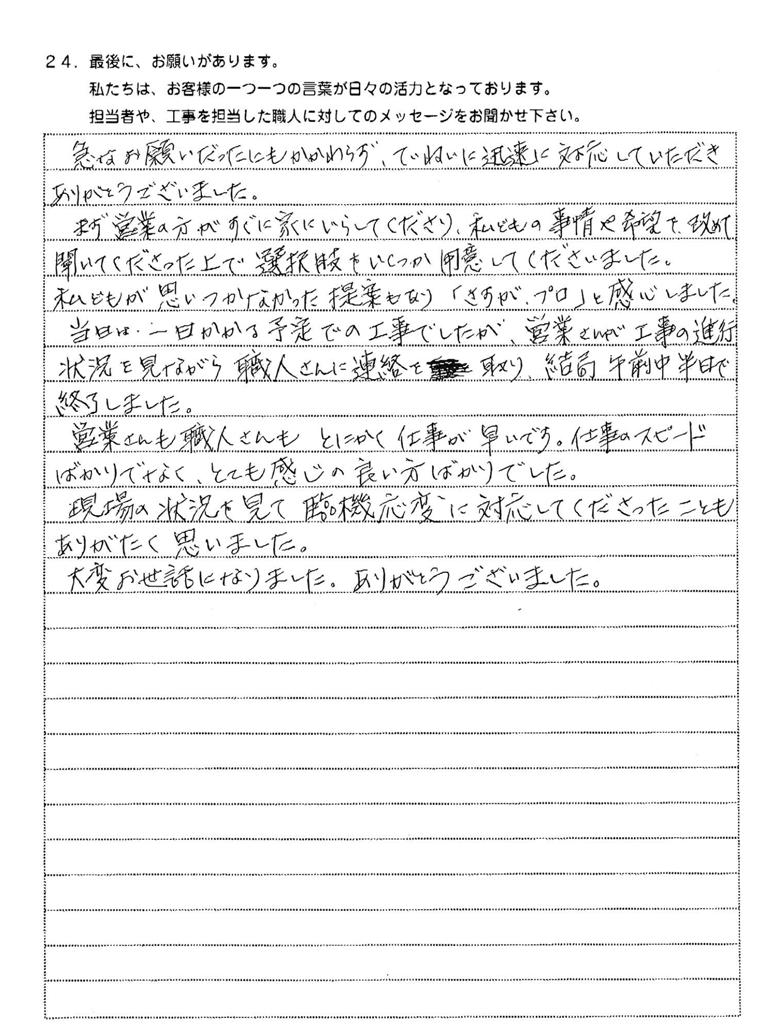 24. 最後に、お願いがあります。
私たちは、お客様の一つ一つの言葉が日々の活力となっております。
担当者や、工事を担当した職人に対してのメッセージをお聞かせ下さい。
急なお願いだったにもかかわらず、ていねいに迅速に対応していただき
ありがとうございました。
まず営業の方がすぐに家にいらしてくださり、私どもの事情や希望を、改めて
聞いてくださった上で選択肢をいくつか用意してくださいました。
私どもが思いつかなかった提案もあり「さすが、プロ」と感心しました。
当日は、一日かかる予定での工事でしたが、営業さんが工事の進行
状況を見ながら職人さんに連絡を取り、結局午前中半日で
終了しました。
営業さんも職人さんもとにかく仕事が早いです。仕事のスピード
ばかりでなく、とても感じの良い方ばかりでした。
現場の状況を見て臨機応変に対応してくださったことも
ありがたく思いました。
大変お世話になりました。ありがとうございました。